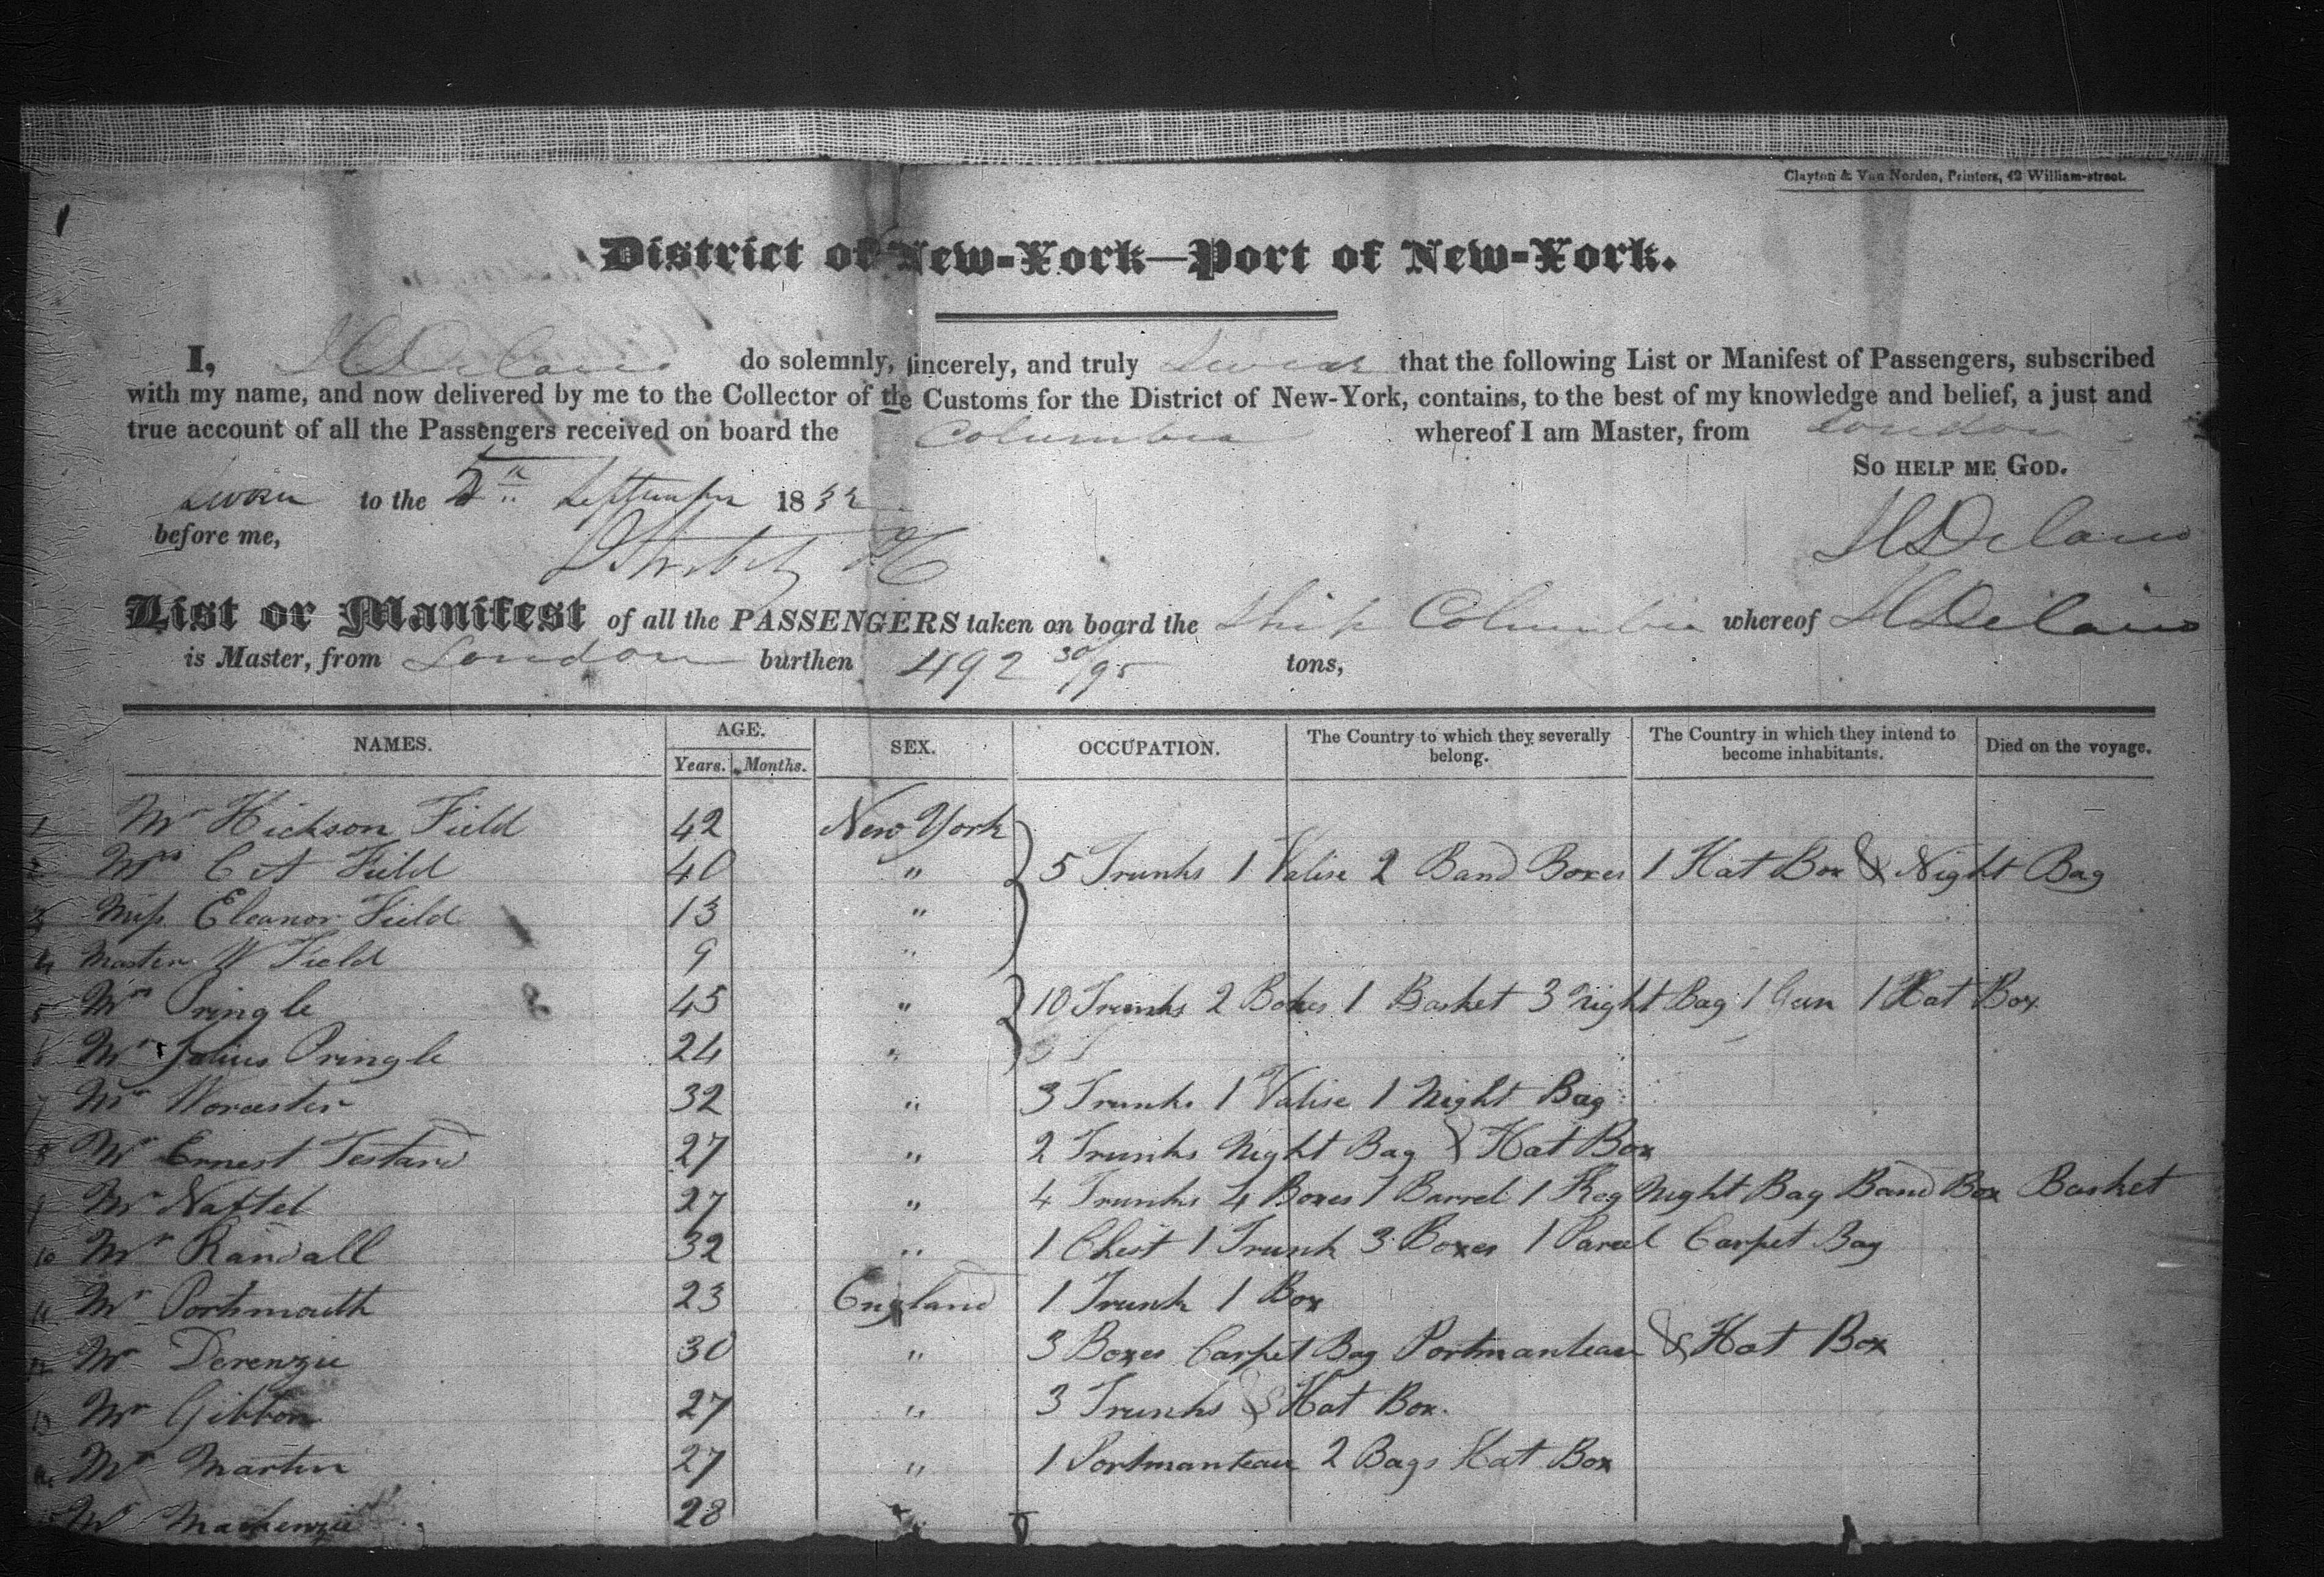 Clayton & Van Norden, Printers, 42 William-street.
District of New-York—Port of New-York.
I, H Delano do solemnly, sincerely, and truly swear that the following List or Manifest of Passengers, subscribed
with my name, and now delivered by me to the Collector of the Customs for the District of New-York, contains, to the best of my knowledge and belief, a just and
true account of all the Passengers received on board the Columbia whereof I am Master, from London
So help me God.
Sworn to the 5th September 1832
before me,
H Delano
List or Manifest of all the PASSENGERS taken on board the Ship Columbia whereof H Delano
is Master, from London burthen 492 30/95 tons,
NAMES. AGE. Years. Months. SEX. OCCUPATION. The Country to which they severally belong. The Country in which they intend to become inhabitants. Died on the voyage.
1 Mr Hickson Field 42 New York
2 Mrs C A Field 40 " 5 Trunks 1 Valise 2 Band Boxes 1 Hat Box & Night Bag
3 Miss Eleanor Field 13 "
4 Master W Field 9 "
5 Mrs Pringle 45 " 10 Trunks 2 Boxes 1 Basket 3 Night Bag 1 Gun 1 Hat Box
6 Mr Julius Pringle 24 "
7 Mr Worcester 32 " 3 Trunks 1 Valise 1 Night Bag
8 Mr Ernest Testard 27 " 2 Trunks Night Bag & Hat Box
9 Mr Naftel 27 " 4 Trunks 4 Boxes 1 Barrel 1 Keg Night Bag Band Box Basket
10 Mr Randall 32 " 1 Chest 1 Trunk 3 Boxes 1 Parcel Carpet Bag
11 Mr Portsmouth 23 England 1 Trunk 1 Box
12 Mr Derenzie 30 " 3 Boxes Carpet Bag Portmanteau & Hat Box
13 Mr Gibbon 27 " 3 Trunks & Hat Box.
14 Mr Martin 27 " 1 Portmanteau 2 Bags Hat Box
Mr Mackenzie 28